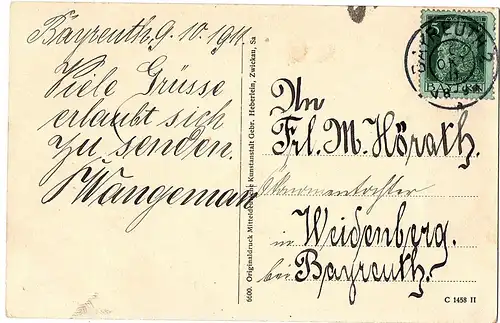 Bayreuth, 9. 10. 1911.
Viele Grüsse
erlaubt sich
zu senden.
Wangeman
6600. Originaldruck Mitteldeutsche Kunstanstalt Gebr. Heberlein, Zwickau, Sa
An
Frl. M. Hörath.
in Weidenberg.
bei Bayreuth.
C 1458 II